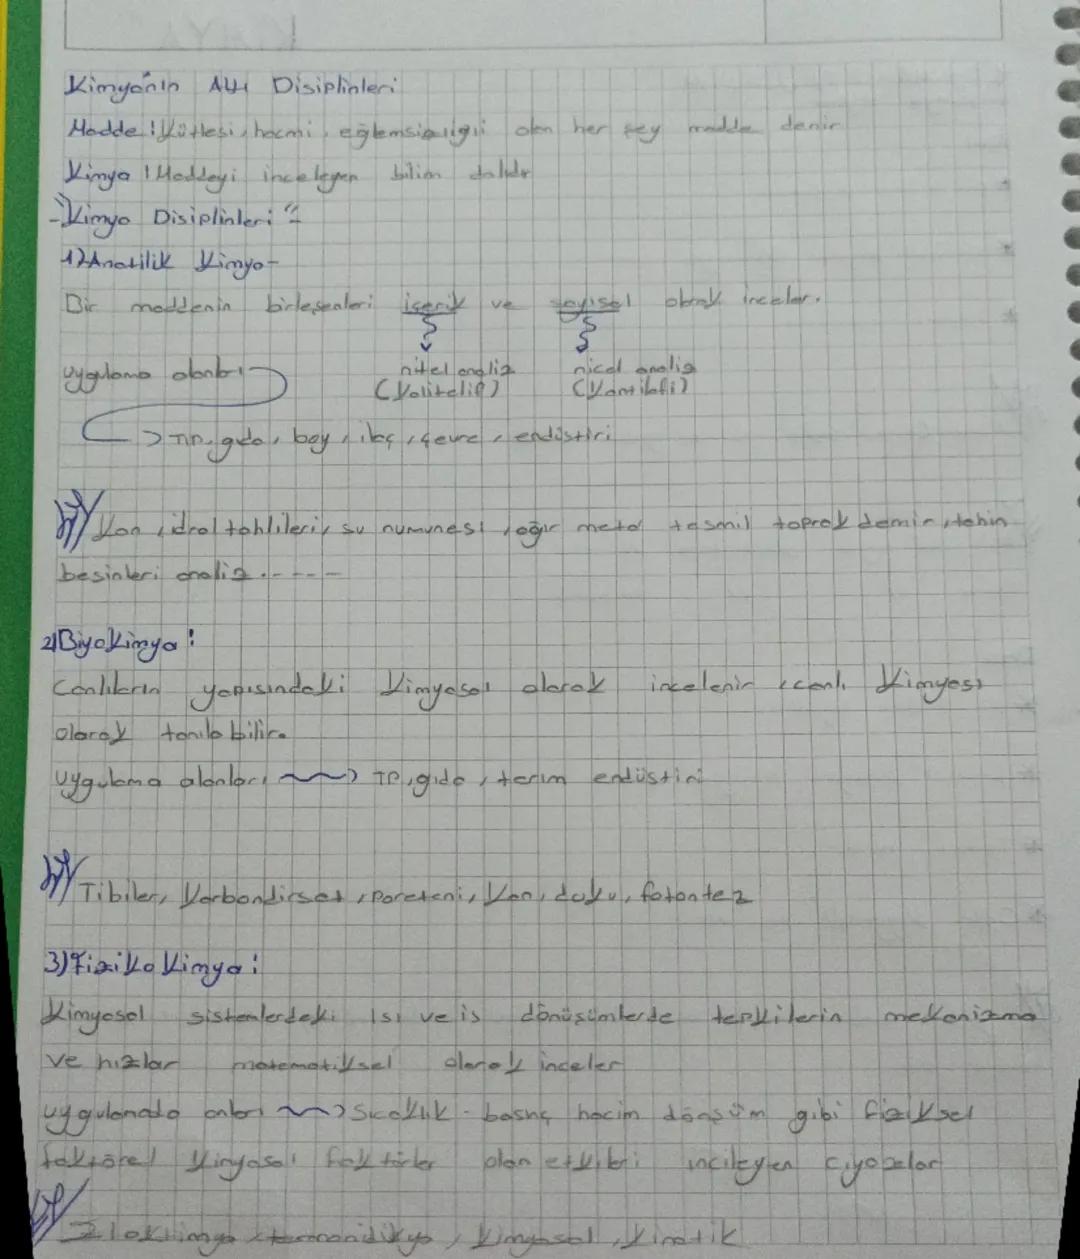 Kimya'nın Alt Disiplinleri
Madde: Kütlesi, hacmi, eğlemsizliği olan her şey madde denir
Kimya: Maddeyi inceleyen bilim dalıdır
-Kimya Disiplinleri"
1) Anatilik Kimya-
Bir maddenin birleşenleri içerik ve sayısal olarak inceler.
nitel analiz nicel analiz
uygulama alanları
(Kalitelif) (Kantilafi)
Tıp, gıda, boy, ilaç, çevre, endüstiri
Kan, idral tahlileri, su numunesi, ağır metal tesmil toprak demir, tahin
besinleri analiz.----
2) Biyokimya:
Canlıların yapısındaki kimyasal olarak incelenir, canlı kimyası
olarak tanıla bilir.
uygulama alanları Tıp, gıda, tarım endüstiri
Tibiler, Karbondirsat, poreteni, kan, doku, fotontez
3) Fiziko kimya:
Kimyasal sistemlerdeki ısı ve is dönüşümlerde tepkilerin mekanizma
ve hızlar matematiksel olarak inceler
uygulanada anları Sıcaklık - basınç hacim dönşüm gibi fiziksel
faktörel kimyasal faktörler olan etkileri incileyen
kimyasal, kinetik